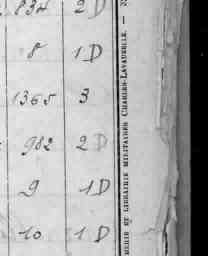 834 2 D
8 1 D
1365 3
982 2 D
9 1 D
10 1 D
MERIE ET LIBRAIRIE MILITAIRES CHARLES-LAVAUZELLE. —